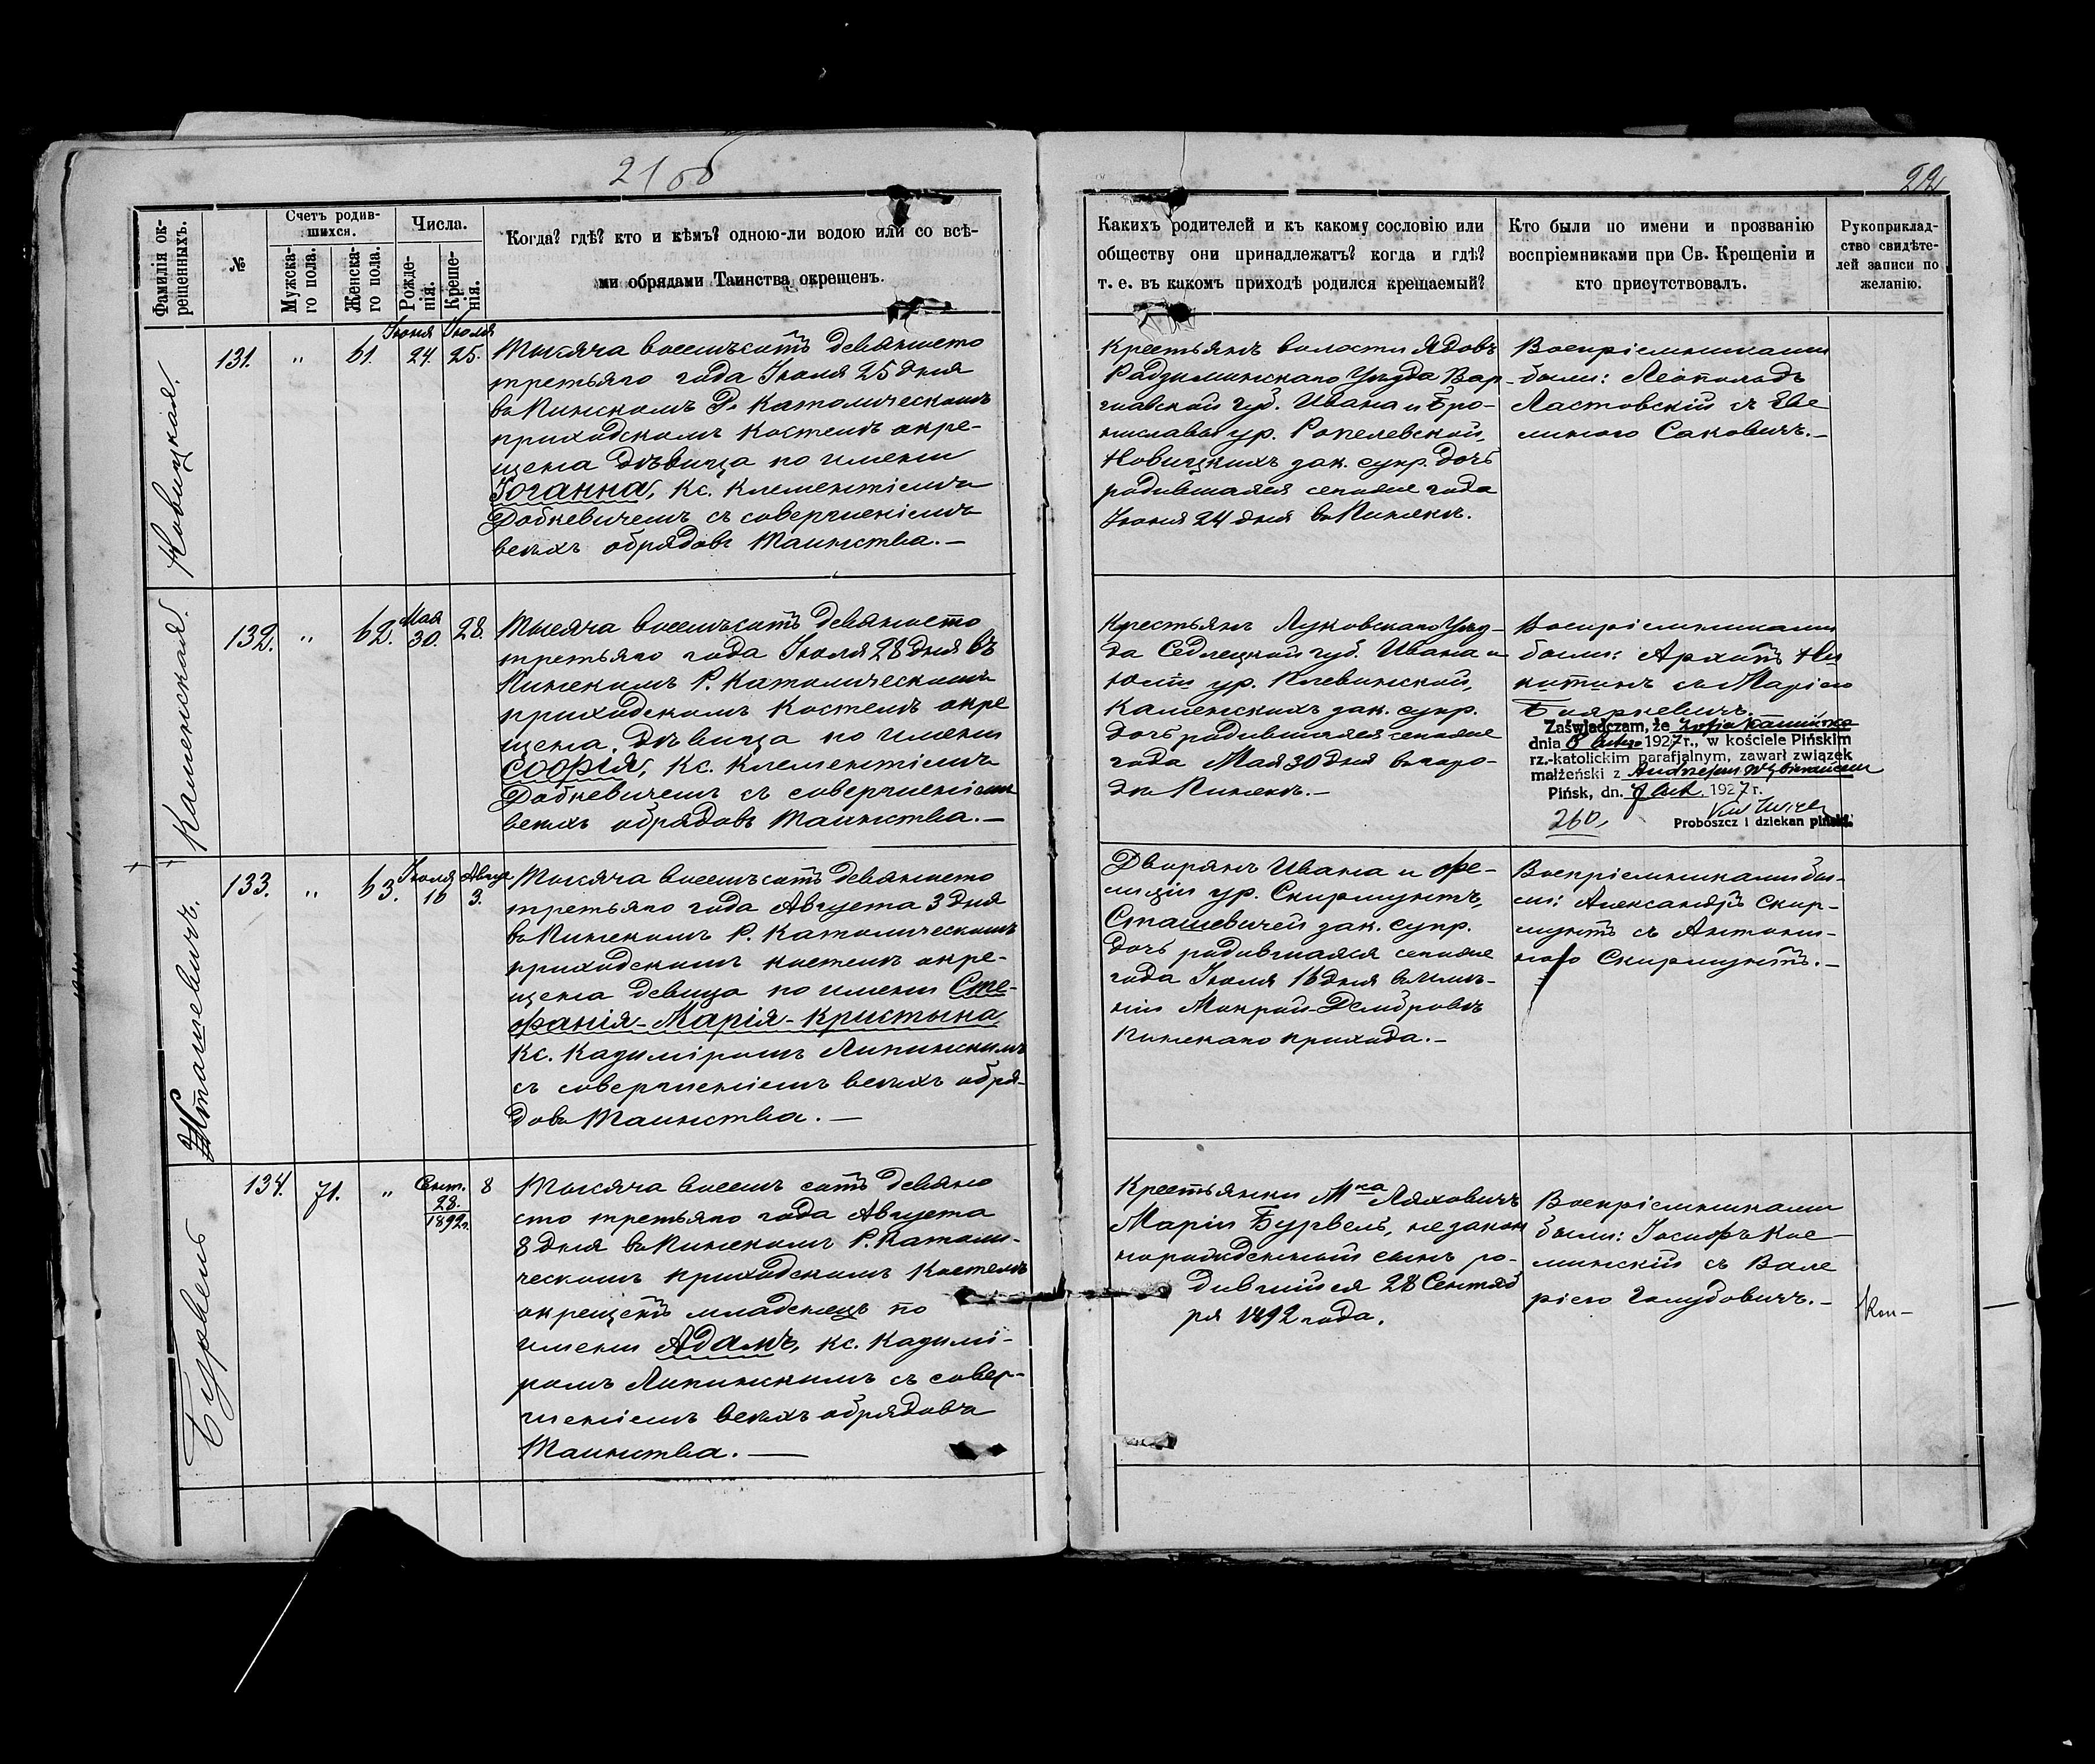 21 об
22
Фамилія ок-
рещенныхъ.
№
Счетъ родив-
шихся.
Мужска-
го пола.
Женска-
го пола.
Числа.
Рожде-
нія.
Креще-
нія.
Когда? гдѣ? кто и кѣмъ? одною-ли водою или со всѣ-
ми обрядами Таинства окрещенъ.
Какихъ родителей и къ какому сословію или
обществу они принадлежатъ? когда и гдѣ?
т. е. въ какомъ приходѣ родился крещаемый?
Кто были по имени и прозванію
воспріемниками при Св. Крещеніи и
кто присутствовалъ.
Рукоприклад-
ство свидѣте-
лей записи по
желанію.
Новицкая.
131.
"
61.
Іюня 24.
Іюля 25.
Тысяча восемьсотъ девяносто
третьяго года Іюля 25 дня
въ Пинскомъ Р. Католическомъ
приходскомъ костелѣ окре-
щена дѣвица по имени
Іоганна, Кс. Клементіемъ
Добкевичемъ съ совершеніемъ
всѣхъ обрядовъ Таинства.—
Крестьянъ волости Ядовъ
Радзиминскаго Уѣзда Вар-
шавской губ. Ивана и Бро-
ниславы ур. Ропелевской,
Новицкихъ зак. супр. дочь
родившаяся сего же года
Іюня 24 дня въ Пинскѣ.
Воспріемниками
были: Леопольдъ
Ластовскій съ Эве
линою Саковичъ.—
Каменская.
132.
"
62.
Мая 30.
28.
Тысяча восемьсотъ девяносто
третьяго года Іюля 28 дня въ
Пинскомъ Р. Католическомъ
приходскомъ костелѣ окре
щена, дѣвица по имени
Софія, Кс. Клементіемъ
Добкевичемъ съ совершеніемъ
всѣхъ обрядовъ Таинства.—
Крестьянъ Луковскаго Уѣз-
да Седлецкой губ. Ивана и
Юліи ур. Плевинской,
Каменскихъ зак. супр.
дочь родившаяся сего же
года Мая 30 дня въ горо-
дѣ Пинскѣ.—
Воспріемниками
были: Архипъ Ни
китинъ съ Маріею
Бояркевичъ.
Zaświadczam, że Zofja Kamińska
dnia 6 lutego 1927 r., w kościele Pińskim
rz.-katolickim parafjalnym, zawarł związek
małżeński z Andrzejem
Pińsk, dn. 7 lut. 1927 r.
260,
Proboszcz i dziekan piński.
Сташевичъ.
133.
"
63.
Іюля 16
Авгус 3.
Тысяча восемьсотъ девяносто
третьяго года Августа 3 дня
въ Пинскомъ Р. Католическомъ
приходскомъ костелѣ окре-
щена девица по имени Сте-
фанія-Марія-Кристына
Кс. Казиміромъ Липинскимъ
съ совершеніемъ всѣхъ обря-
довъ Таинства.—
Дворянъ Ивана и Фе-
лиціи ур. Скирмунтъ,
Сташевичей зак. супр.
дочь родившаяся сего же
года Іюля 16 дня въ имѣ-
ніи Мокрой-Демброве
Пинскаго прихода.—
Воспріемниками бы-
ли: Александръ Скир-
мунтъ съ Антони-
ною Скирмунтъ.—
Бурвель
134.
71.
"
Сент. 28. 1892 г.
8
Тысяча восемь сотъ девяно
сто третьяго года Августа
8 дня въ Пинскомъ Р. Католи-
ческомъ приходскомъ Костелѣ
окрещенъ младенецъ по
имени Адамъ, Кс. Казимі-
ромъ Липинскимъ съ совер-
шеніемъ всѣхъ обрядовъ
Таинства.—
Крестьянки Мка Ляховичъ
Маріи Бурвель, незакон
норожденный сынъ ро-
дившійся 28 Сентяб
ря 1892 года.
Воспріемниками
были: Іосифъ Кос-
минскій съ Вале
ріею Голубовичъ.—